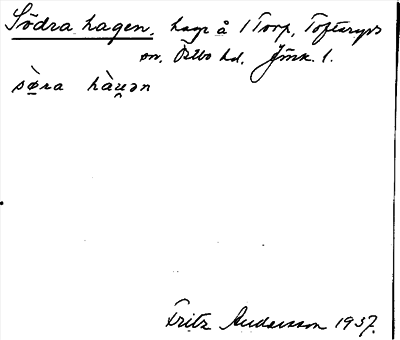 Södra hagen. hage å 1 Torp, Tofteryds
sn. Östbo hd. Jönk. l.
sø̀ra hàu̯ən
Fritz Andersson 1937.